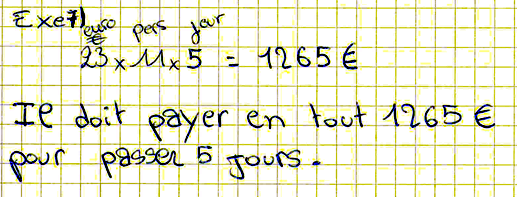 Exe 7)
euro pers jour
23 x 11 x 5 = 1265 €
Il doit payer en tout 1265 €
pour passer 5 jours.